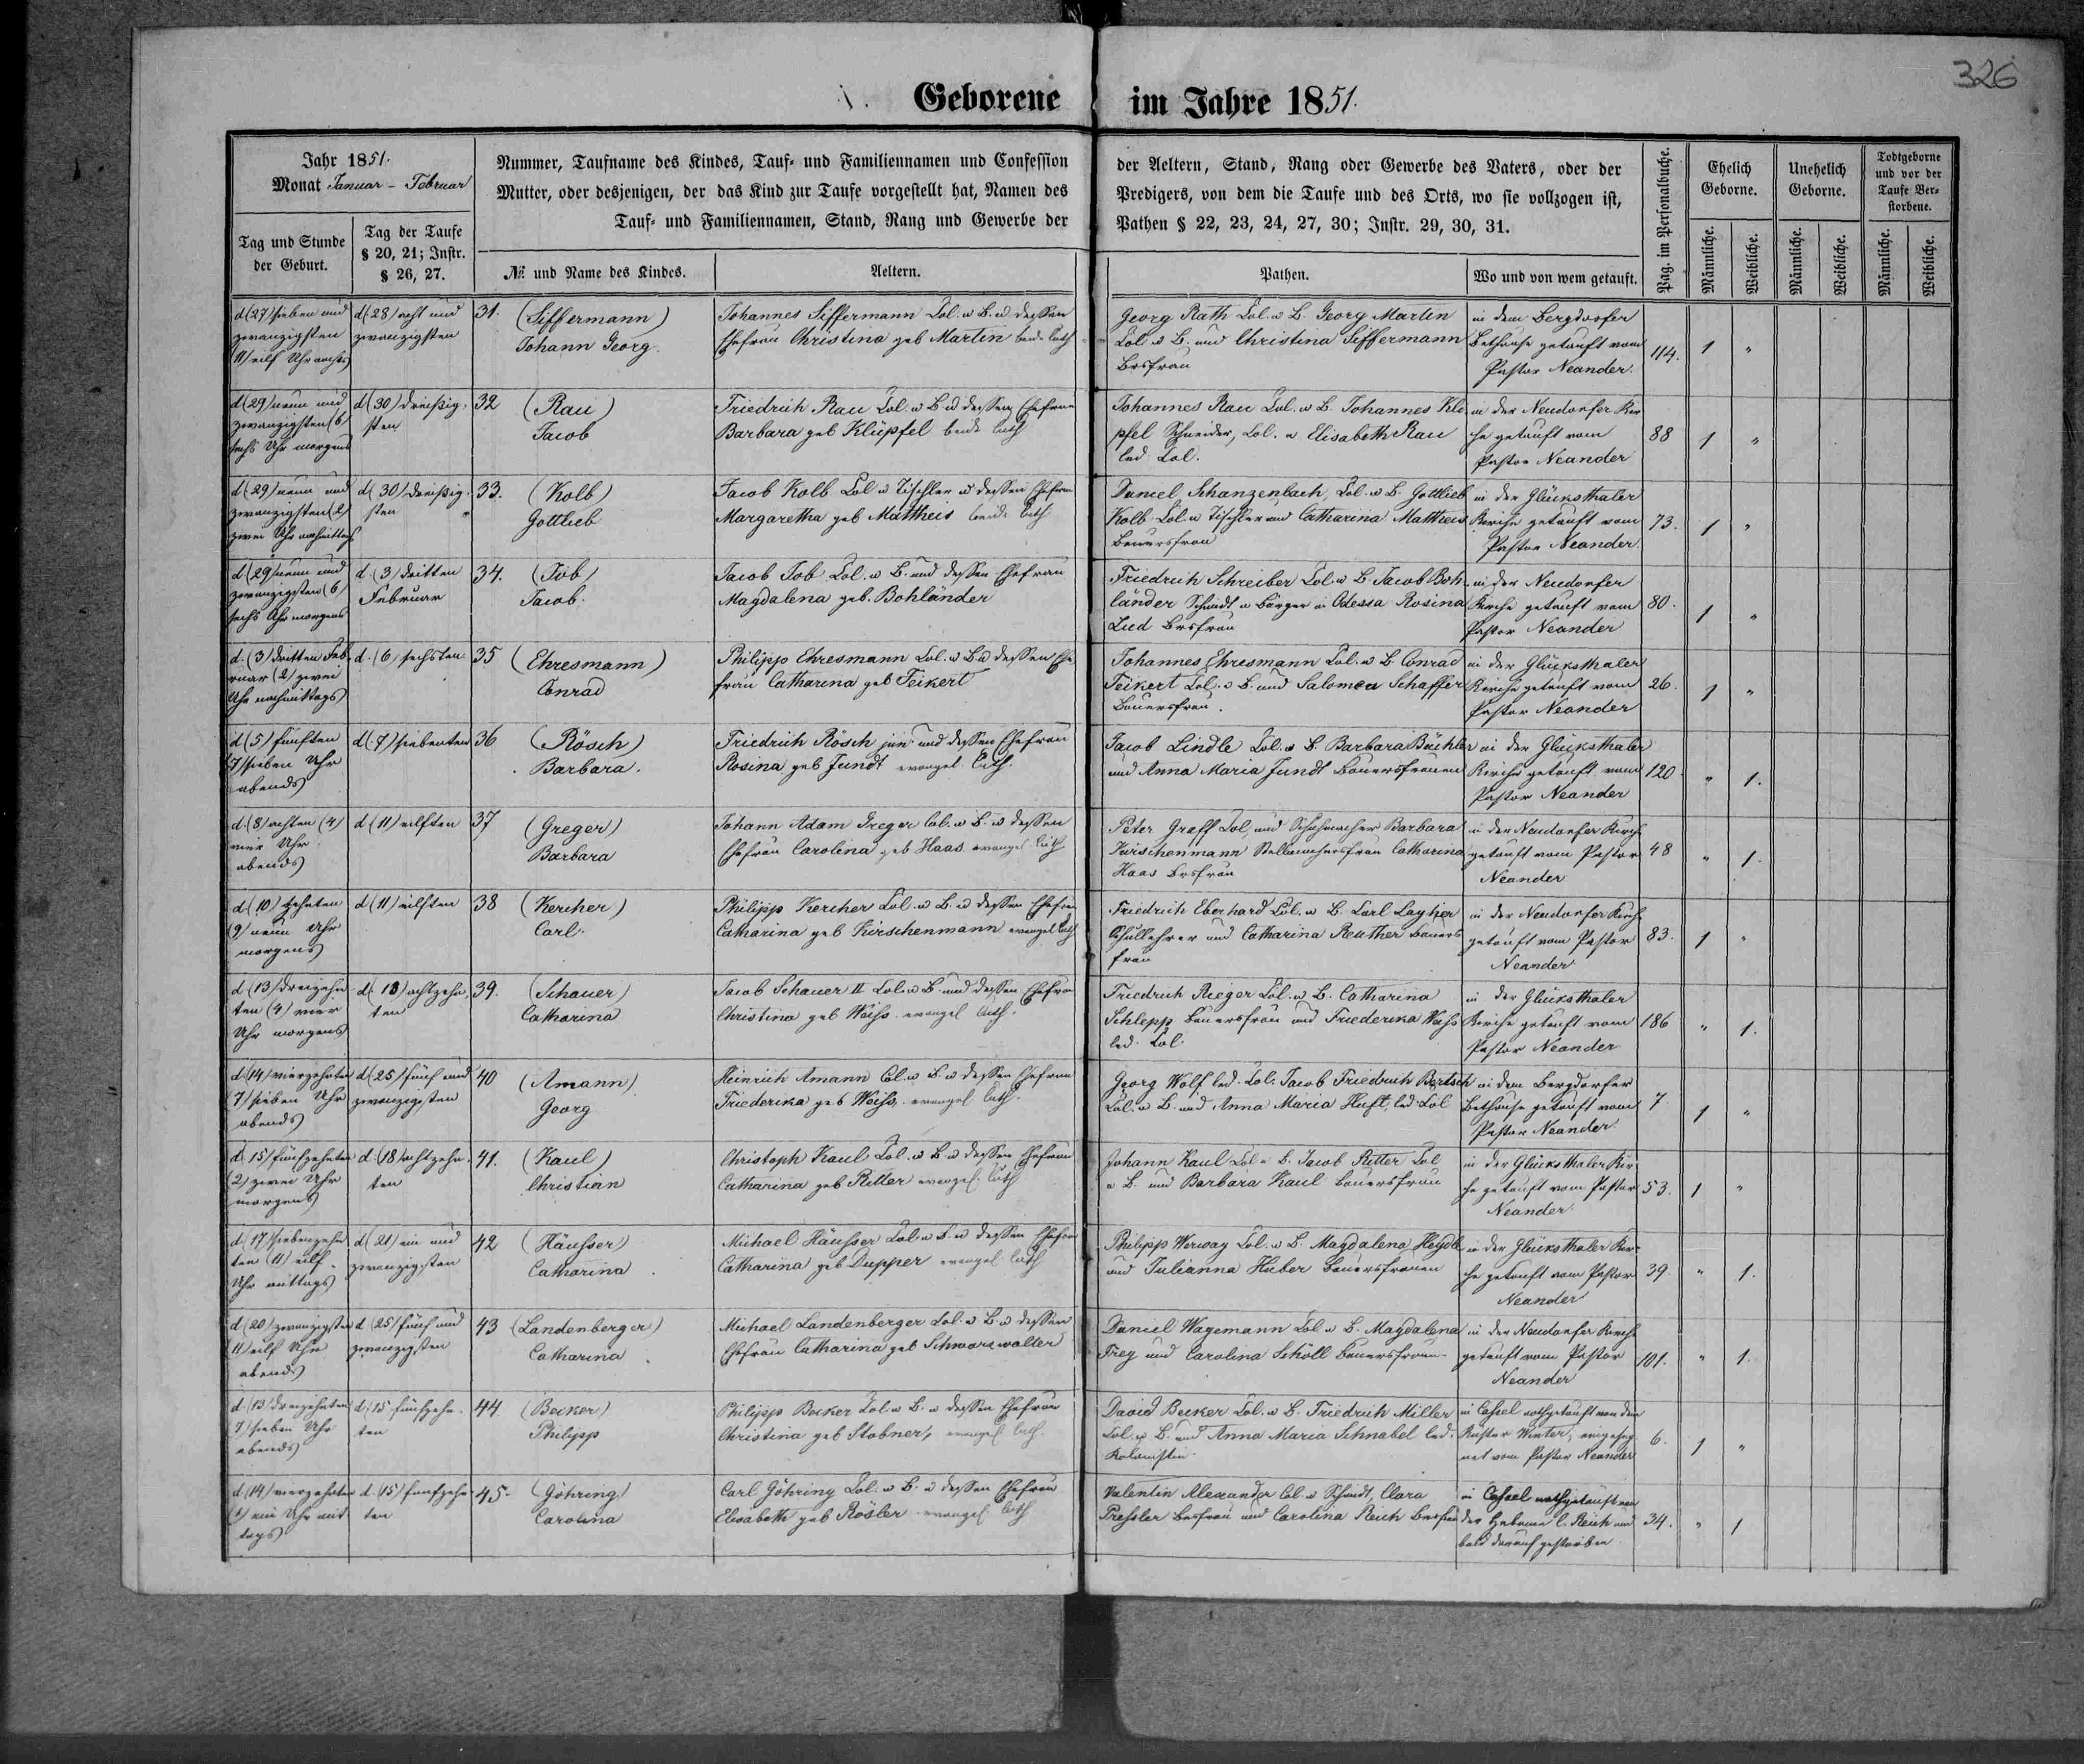 326
Geborene im Jahre 1851.
Jahr 1851.
Monat Januar – Februar
Tag und Stunde
der Geburt.
Tag der Taufe
§ 20, 21; Instr.
§ 26, 27.
Nummer, Taufname des Kindes, Tauf- und Familiennamen und Confession
Mutter, oder desjenigen, der das Kind zur Taufe vorgestellt hat, Namen des
Tauf- und Familiennamen, Stand, Rang und Gewerbe der
№ und Name des Kindes.
Aeltern.
der Aeltern, Stand, Rang oder Gewerbe des Vaters, oder der
Predigers, von dem die Taufe und des Orts, wo sie vollzogen ist,
Pathen § 22, 23, 24, 27, 30; Instr. 29, 30, 31.
Pathen.
Wo und von wem getauft.
Pag. im Personalbuche.
Ehelich
Geborne.
Unehelich
Geborne.
Todtgeborne
und vor der
Taufe Ver-
storbene.
Männliche.
Weibliche.
Männliche.
Weibliche.
Männliche.
Weibliche.
d (27) sieben und
zwanzigsten
11) eilf Uhr nachts
d (28) acht und
zwanzigsten
31. (Siffermann)
Johann Georg.
Johannes Siffermann Col. u B. u dessen
Ehefrau Christina geb Martin beide luth
Georg Rath Col. u B. Georg Martin
Col u B. und Christina Siffermann
Brsfrau
in dem Bergdorfer
Bethause getauft vom
Pastor Neander.
114. 1 "
d (29) neun und
zwanzigsten (6)
sechs Uhr morgens
d (30) dreißig-
sten
32 (Rau)
Jacob
Friedrich Rau Col. u B u dessen Ehefrau
Barbara geb Klüpfel beide luth
Johannes Rau Col. u B. Johannes Klü
pfel Schneider, Col. u Elisabeth Rau
led. Col.
in der Neudorfer Kir
che getauft vom
Pastor Neander
88 1 "
d (29) neun und
zwanzigsten (2)
zwei Uhr nachmittags
d (30) dreißig-
sten
33. (Kolb)
Gottlieb
Jacob Kolb Col u Tischler u dessen Ehefrau
Margaretha geb Mattheis beide luth
Daniel Schanzenbach, Col. u B. Gottlieb
Kolb Col. u Tischler und Catharina Mattheis
Bauersfrau
in der Glücksthaler
Kirche getauft vom
Pastor Neander.
73. 1 "
d (29) neun und
zwanzigsten (6)
sechs Uhr morgens
d (3) dritten
Februar
34. (Job)
Jacob.
Jacob Job Col. u B. und dessen Ehefrau
Magdalena geb. Bohländer
Friedrich Schreiber Col. u B. Jacob Boh-
länder Schmidt u Bürger in Odessa Rosina
Lied Brsfrau
in der Neudorfer
Kirche getauft vom
Pastor Neander
80. 1 "
d. (3) dritten Feb
ruar (2) zwei
Uhr nachmittags
d. (6) sechsten
35 (Ehresmann)
Conrad
Philipp Ehresmann Col. u B u dessen Ehe
frau Catharina geb Feikert
Johannes Ehresmann Col. u B Conrad
Feikert Col. u B. und Salomea Schaffer
Bauersfrau.
in der Glücksthaler
Kirche getauft vom
Pastor Neander
26. 1 "
d (5) fünften
(7) sieben Uhr
abends
d (7) siebenten
36 (Rösch)
Barbara.
Friedrich Rösch jun. und dessen Ehefrau
Rosina geb Jundt evangel. luth.
Jacob Lindle Col. u B. Barbara Büchler
und Anna Maria Jundt Bauersfrauen
in der Glücksthaler
Kirche getauft vom
Pastor Neander
120. " 1.
d. (8) achten (4)
vier Uhr
abends
d (11) eilften
37 (Greger)
Barbara
Johann Adam Greger Col. u B. u dessen
Ehefrau Carolina geb Haas evangel luth
Peter Graff Col und Schuhmacher Barbara
Kirschenmann Stellmachersfrau Catharina
Haas Brsfrau
in der Neudorfer Kirche
getauft vom Pastor
Neander
48 " 1.
d (10) zehnten
(9) neun Uhr
morgens
d (11) eilften
38 (Kercher)
Carl.
Philipp Kercher Col. u B. u dessen Ehefrau
Catharina geb Kirschenmann evangel luth
Friedrich Eberhard Col. u B. Carl Laytzer
Schullehrer und Catharina Reuther Bauers
frau
in der Neudorfer Kirche
getauft vom Pastor
Neander
83. 1 "
d (13) dreizehn
ten (4) vier
Uhr morgens
d (18) achtzehn
ten
39. (Schauer)
Catharina
Jacob Schauer II Col. u B. und dessen Ehefrau
Christina geb Weiss evangel luth.
Friedrich Rieger Col. u B. Catharina
Schlepp Bauersfrau und Friederika Weiss
led. Col.
in der Glücksthaler
Kirche getauft vom
Pastor Neander
186 " 1.
d (14) vierzehnten
7) sieben Uhr
abends
d (25) fünf und
zwanzigsten
40 (Amann)
Georg
Heinrich Amann Col. u B. u dessen Ehefrau
Friederika geb Weiss, evangel luth.
Georg Wolf led. Col. Jacob Friedrich Bertsch
Col. u B. und Anna Maria Huft, led. Col
in dem Bergdorfer
Bethause getauft vom
Pastor Neander.
7 1 "
d. 15) fünfzehnten
(2) zwei Uhr
morgens
d. (18) achtzehn-
ten
41. (Kaul)
Christian
Christoph Kaul Col. u B u dessen Ehefrau
Catharina geb Ritter evangel. luth
Johann Kaul Col u B. Jacob Ritter Col
u B. und Barbara Kaul Bauersfrau
in der Glücksthaler Kir
che getauft vom Pastor
Neander
53. 1 "
d. 17) siebenzehn
ten (11) eilf
Uhr mittags
d (21) ein und
zwanzigsten
42 (Häusser)
Catharina
Michael Häusser Col. u B. u dessen Ehefrau
Catharina geb Dupper evangel luth
Philipp Werway Col. u B. Magdalena Heydle
und Julianna Huber Bauersfrauen
in der Glücksthaler Kir-
che getauft vom Pastor
Neander
39. " 1.
d (20) zwanzigsten
11) eilf Uhr
abends
d (25) fünf und
zwanzigsten
43 (Landenberger)
Catharina
Michael Landenberger Col. u B u dessen
Ehefrau Catharina geb Schwarzwalter
Daniel Wagemann Col u B. Magdalena
Frey und Carolina Schöll Bauersfrauen
in der Neudorfer Kirche
getauft vom Pastor
Neander
101. " 1.
d. (13) dreizehnten
7) sieben Uhr
abends
d. 15 fünfzehn-
ten
44. (Becker)
Philipp
Philipp Becker Col. u B. u dessen Ehefrau
Christina geb Stobner, evangel luth.
David Becker Col. u B. Friedrich Miller
Col. u B. und Anna Maria Schnabel led.
Kolonistin
in Cassel nothgetauft von dem
Küster Winter, eingeseg-
net vom Pastor Neander
6. 1 "
d. (14) vierzehnten
(1) ein Uhr mit
tags
d. (15) fünfzehn
ten
45. (Göhring)
Carolina
Carl Göhring Col. u B. u dessen Ehefrau
Elisabeth geb Rösler evangel luth
Valentin Alexander Col. u Schmidt, Clara
Pressler Brsfrau und Carolina Reich Brsfrau
in Cassel nothgetauft von
der Hebamme C. Reich und
bald darauf gestorben
34. " 1